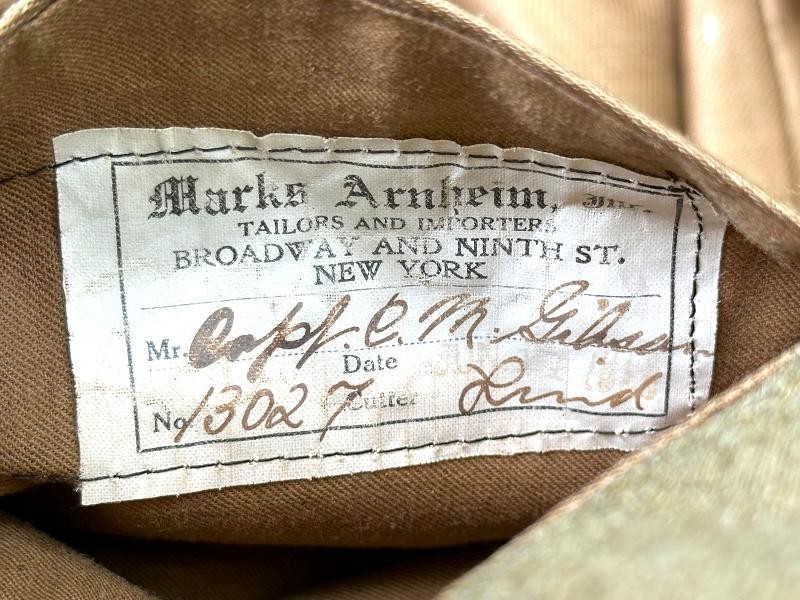 Marks Arnheim, Inc.
TAILORS AND IMPORTERS
BROADWAY AND NINTH ST.
NEW YORK
Mr. Capt. C. M. Gibson
Date
No. 13027 Cutter